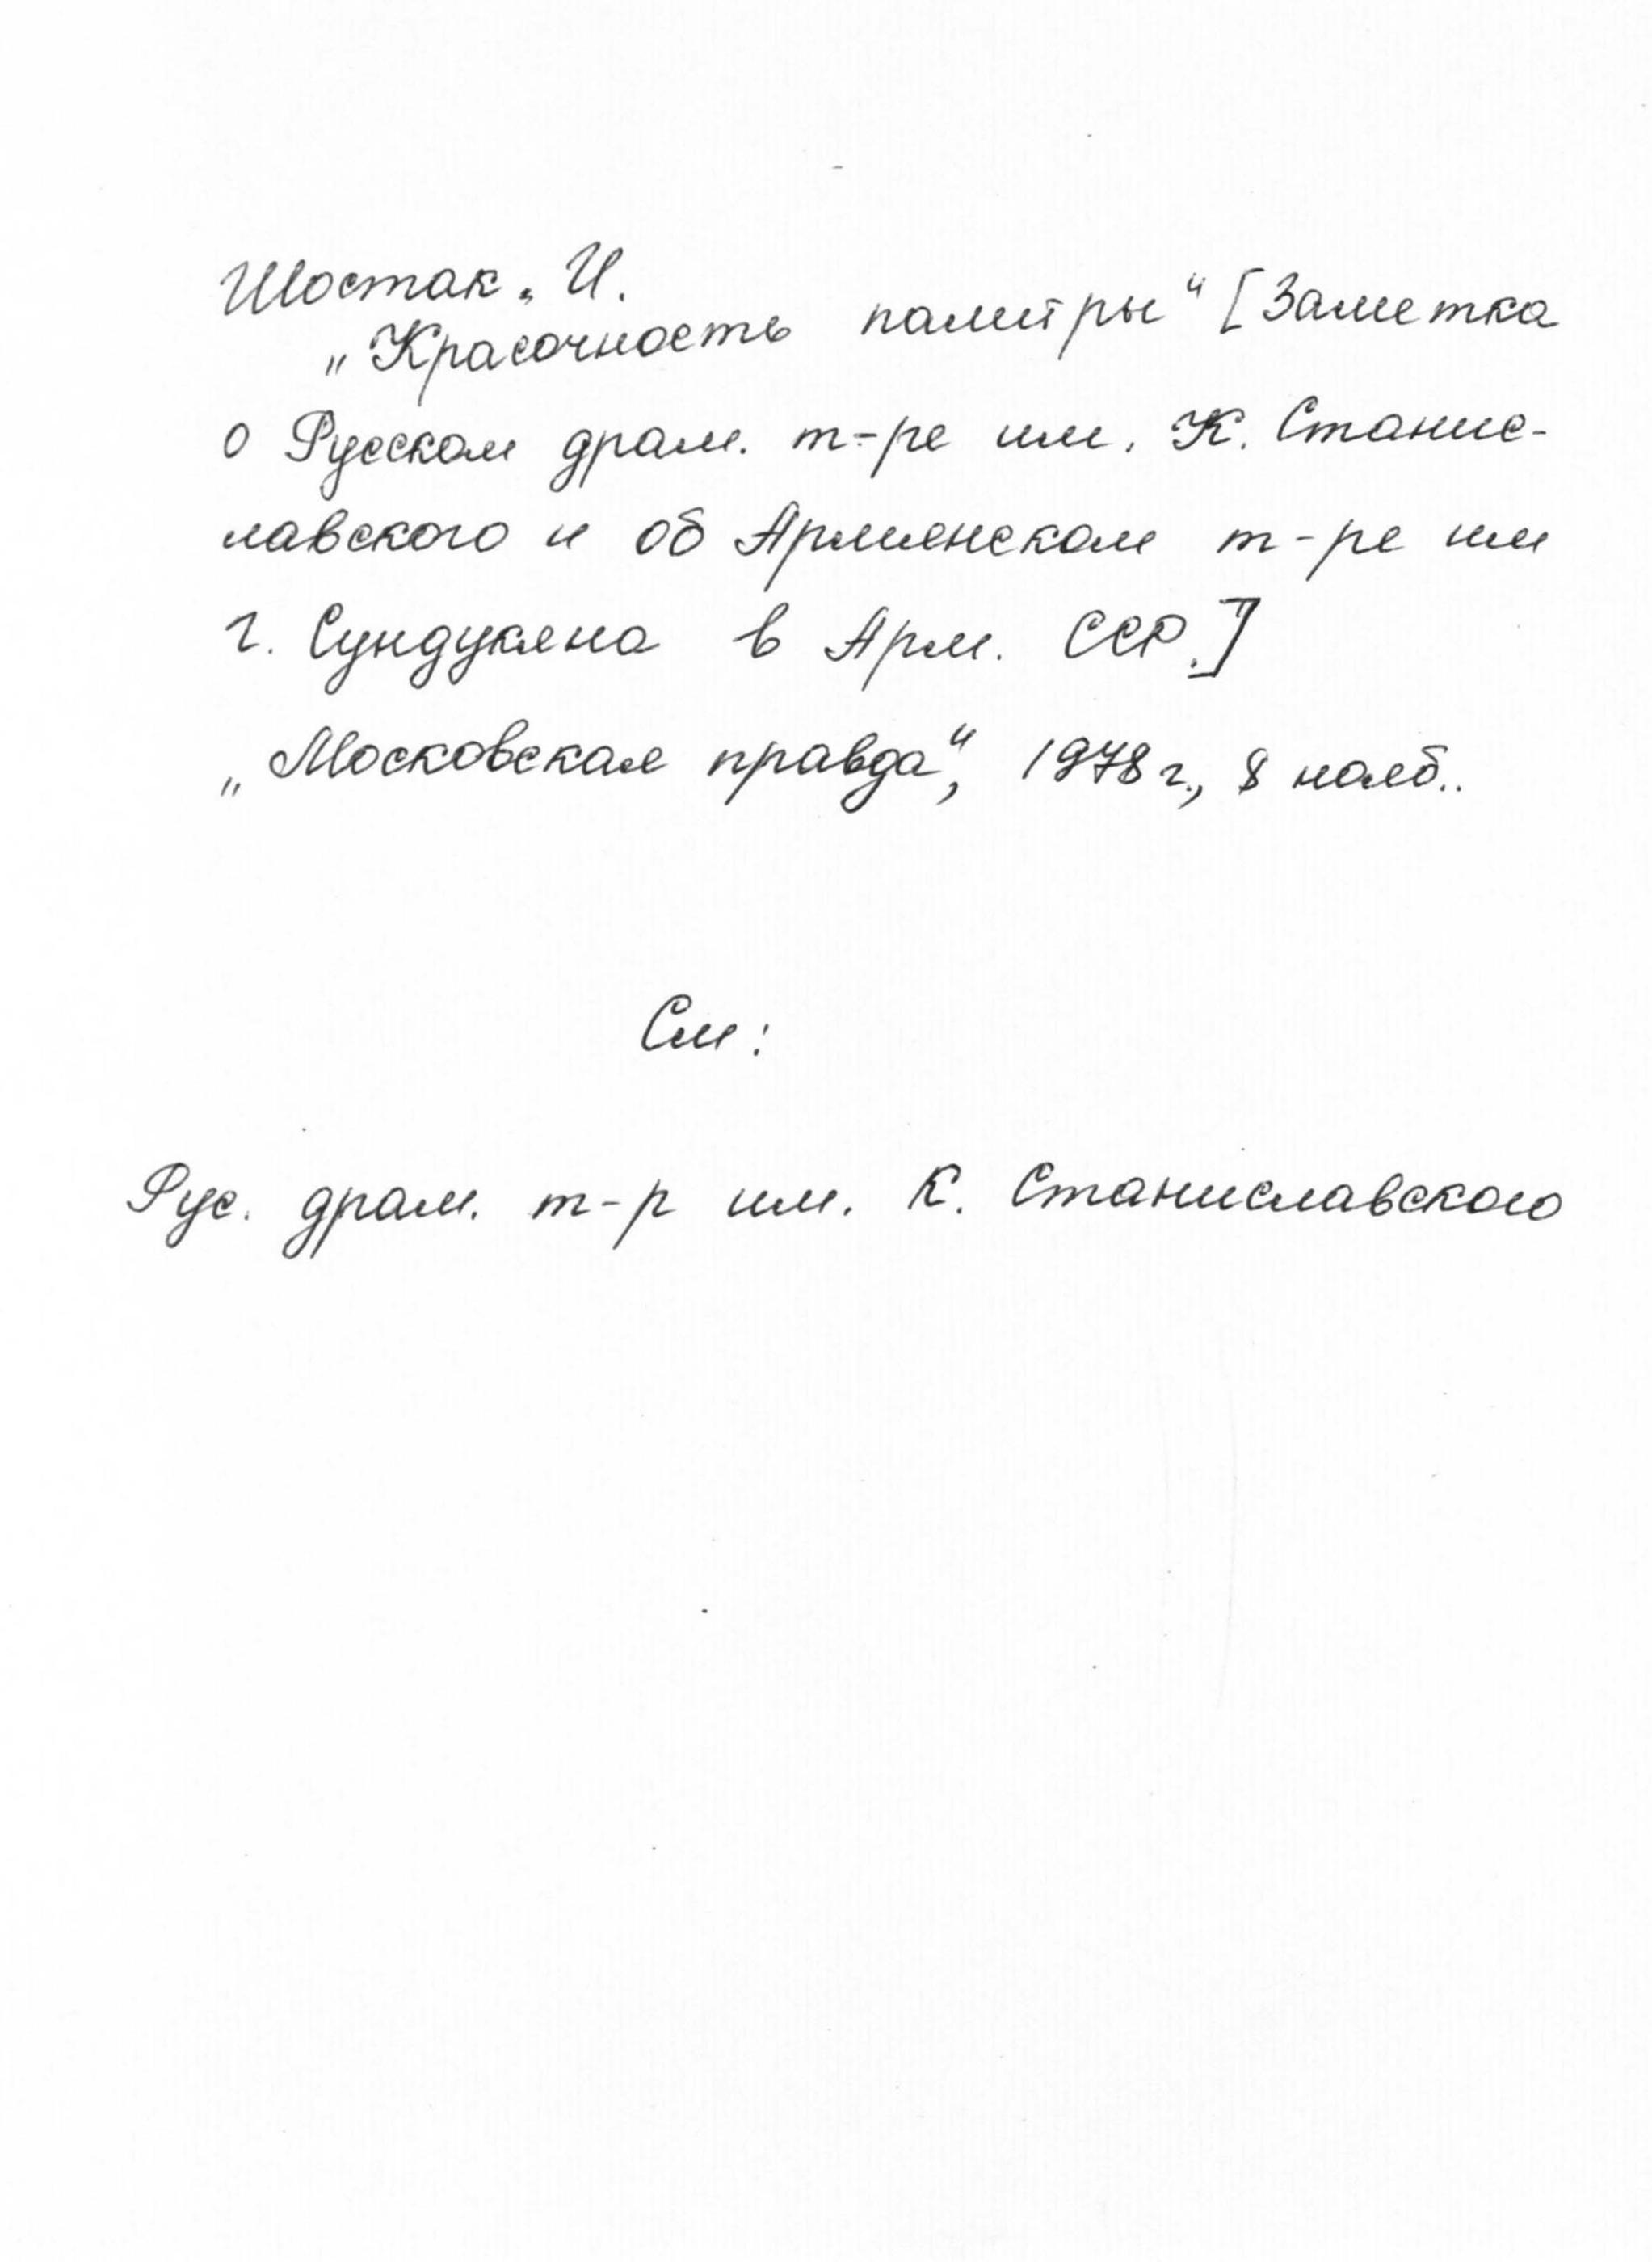 Шостак. И.
„Красочность палитры“ [Заметка
о Русском драм. т-ре им. К. Станис-
лавского и об Армянском т-ре им
Г. Сундукяна в Арм. ССР.]
„Московская правда“, 1978 г., 8 нояб..
См:
Рус. драм. т-р им. К. Станиславского